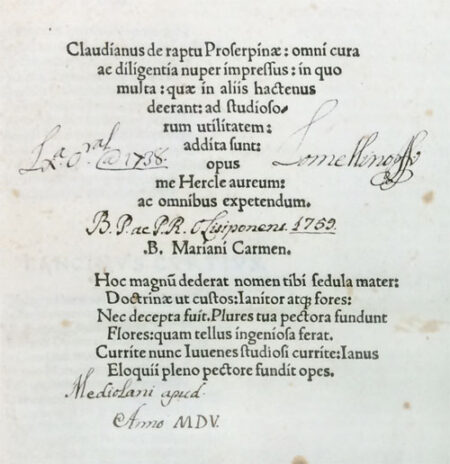 Claudianus de raptu Proserpinæ: omni cura
ac diligentia nuper impressus: in quo
multa: quæ in aliis hactenus
deerant: ad studioso-
rum utilitatem:
addita sunt:
opus
me Hercle aureum:
ac omnibus expetendum.
1738.
B. P. ac P. R. Olisiponens. 1759
.B. Mariani Carmen.
Hoc magnū dederat nomen tibi sedula mater:
Doctrinæ ut custos: Ianitor atq; fores:
Nec decepta fuit. Plures tua pectora fundunt
Flores: quam tellus ingeniosa ferat.
Currite nunc Iuuenes studiosi currite: Ianus
Eloquii pleno pectore fundit opes.
Mediolani apud
Anno MDV.